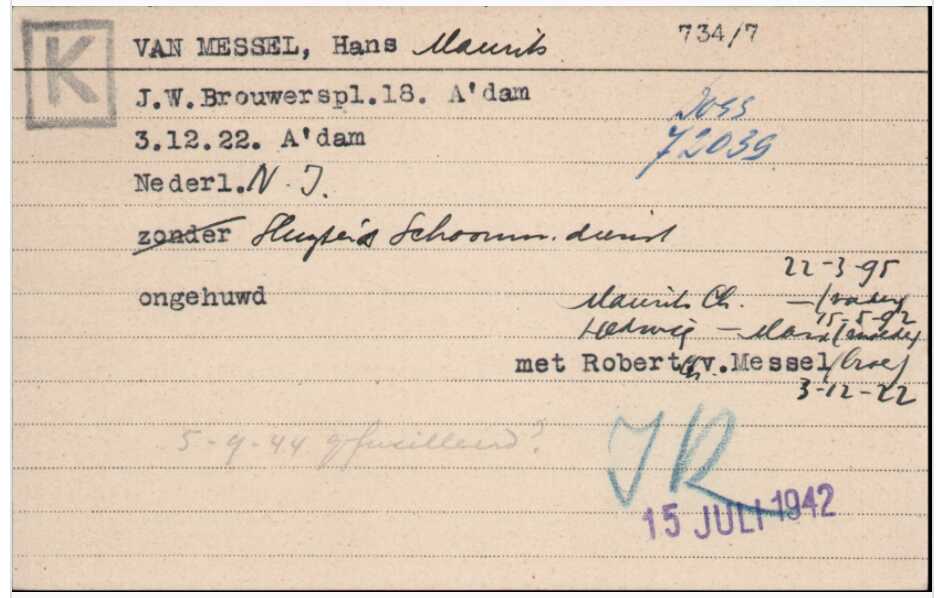 K
VAN MESSEL, Hans Maurits 734/7
J.W.Brouwerspl.18. A'dam
3.12.22. A'dam
72039
Nederl. N. I.
zonder Schoonm. dienst
22-3-95
ongehuwd Maurits Ch. — (vader)
15-5-92
Hedwig — (moeder)
met Robert v.Messel (broer)
3-12-22
5-9-44 gefusilleerd?
JR
15 JULI 1942